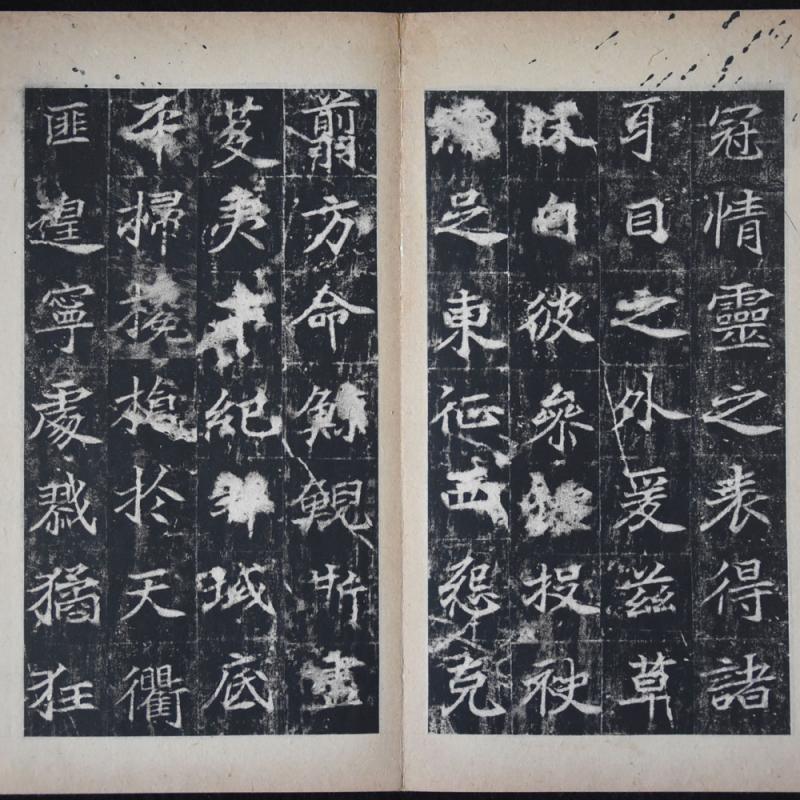 冠情靈之表得諸
耳目之外爰茲草
昧彼參投袂
足東征西怨克
翦方命鯨鯢斯盡
芟夷紀域底
平掃攙槍於天衢
匪遑寧處戮獝狂